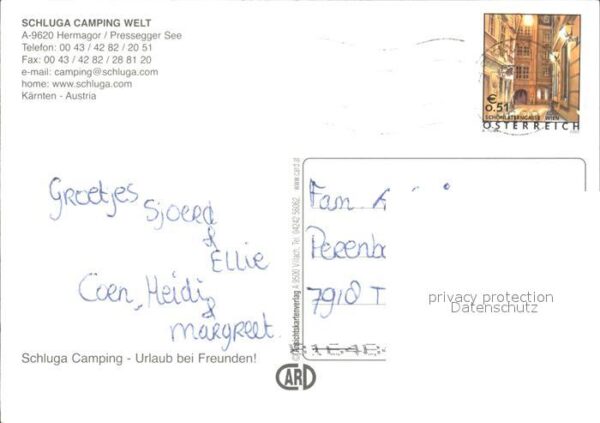 SCHLUGA CAMPING WELT
A-9620 Hermagor / Pressegger See
Telefon: 00 43 / 42 82 / 20 51
Fax: 00 43 / 42 82 / 28 81 20
e-mail: camping@schluga.com
home: www.schluga.com
Kärnten - Austria
€
0.51
SCHÖNLATERNGASSE WIEN
ÖSTERREICH
Groetjes
Sjoerd
&
Ellie
Coen, Heidi
&
Margreet.
Schluga Camping - Urlaub bei Freunden!
Ansichtskartenverlag A 9500 Villach, Tel. 04242 56062 www.card.at
CARD
Fam
7918 T
privacy protection
Datenschutz